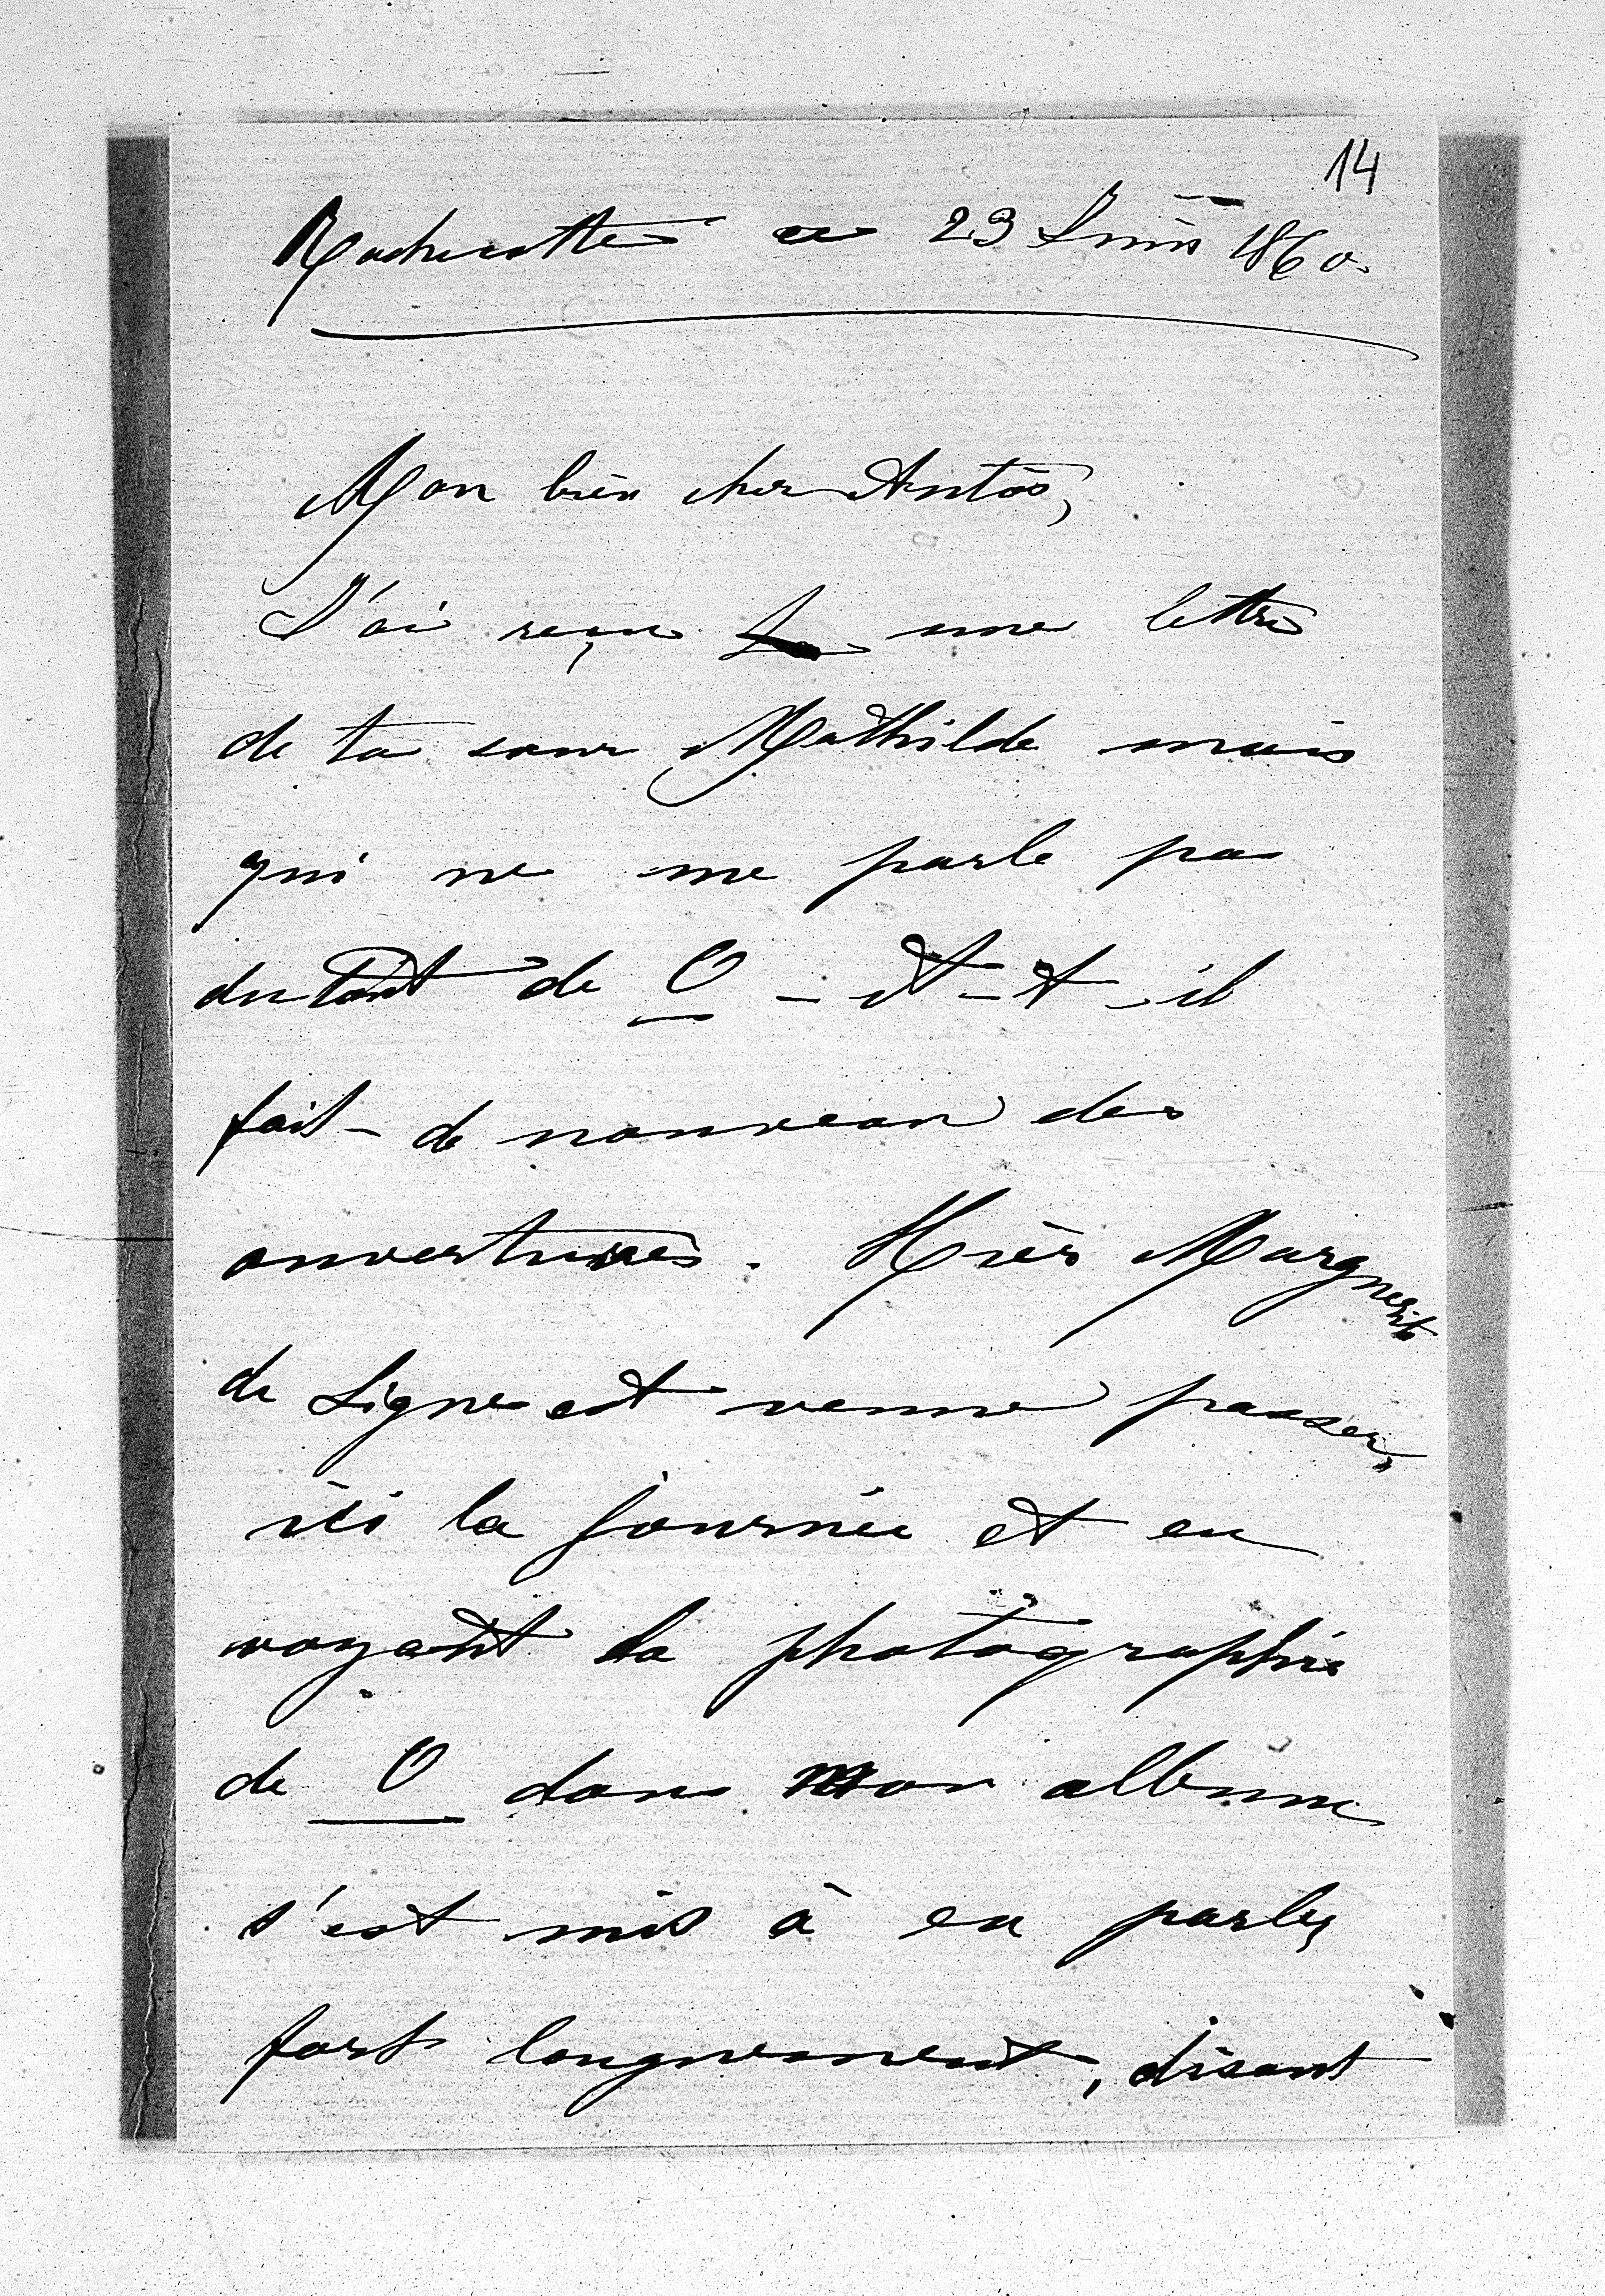 14
ce 23 Juin 1860.
Mon bien cher Antoś,
J'ai reçu une lettre
de ta sœur Mathilde mais
qui ne me parle pas
du tout de O – et – il
fait de nouveau des
ouvertures. Hier Marguerite
de Ligne est venue passer
ici la journée et en
voyant la photographie
de O dans mon album
s'est mis à en parler
fort longuement, disant